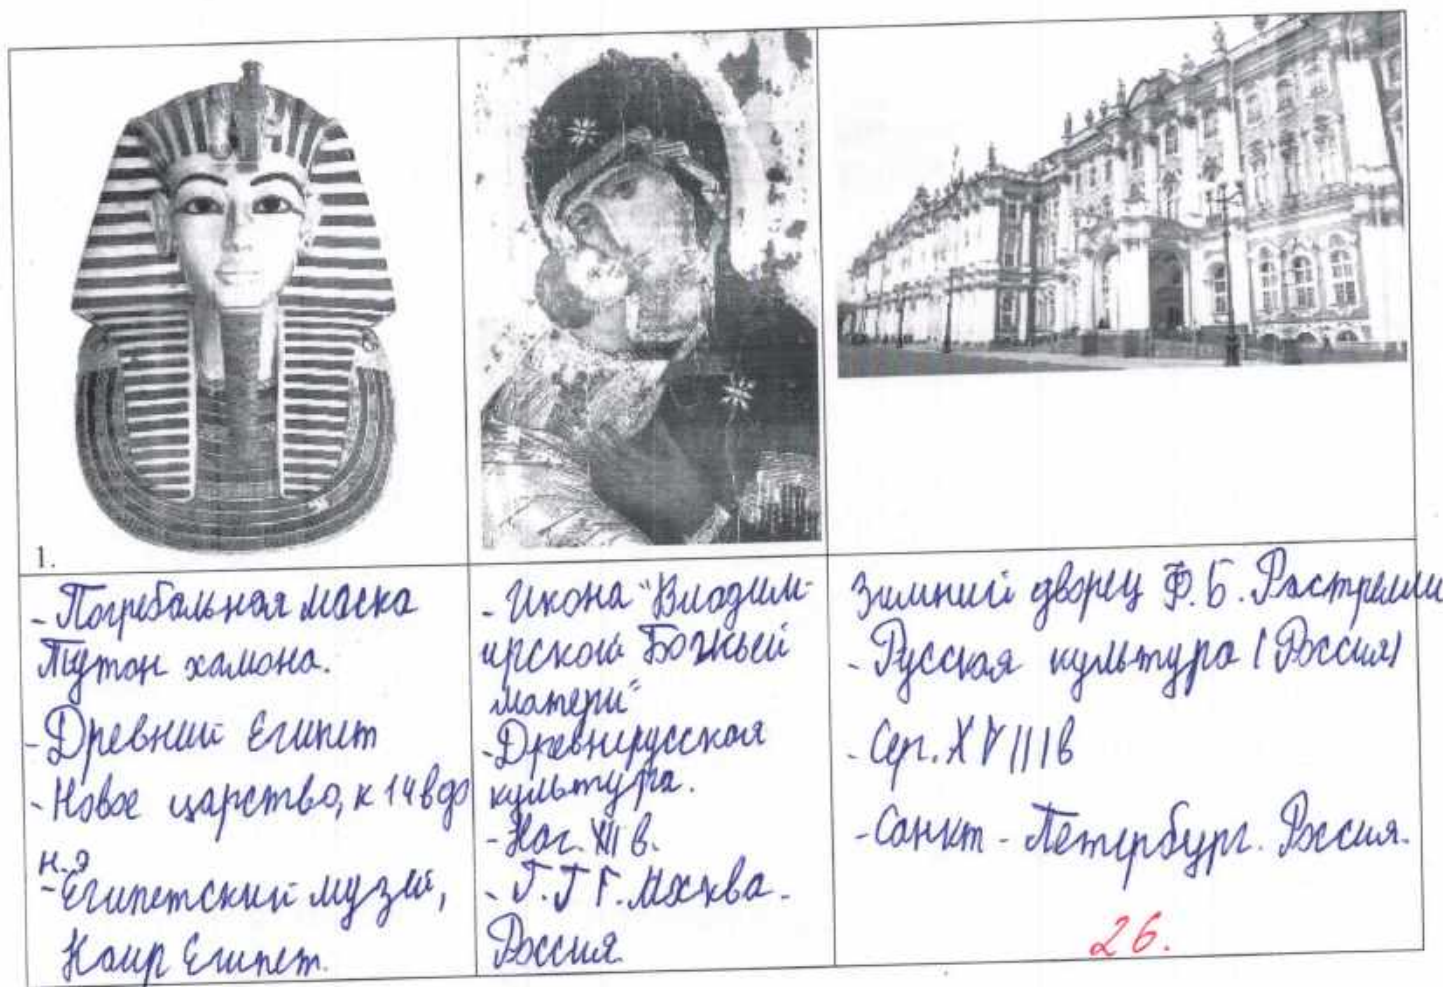 1.
- Погребальная маска
Тутон хамона.
- Древний Египет
- Новое царство, к 14 в до
н.э
- Египетский музей,
Каир Египет.
- Икона "Владим-
ирской Божьей
матери"
- Древнерусская
культура.
- Нач. XII в.
- Г.Т Г. Москва.
Россия
Зимний дворец Ф.Б. Растрелли
- Русская культура (Россия)
- Сер. XVIII в
- Санкт - Петербург. Россия.
2б.